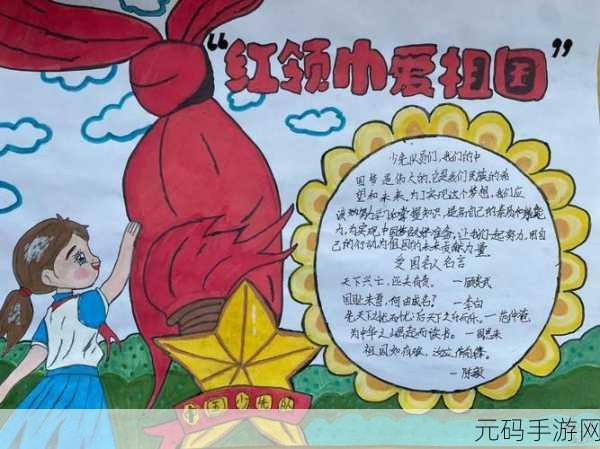 “红领巾爱祖国”
少先队员们，我们的中
国梦是伟大的，它是我们民族的希
望和未来。为了实现这个梦想，我们应
该努力学习，掌握知识，提高自己的素质和能
力，为实现中国梦做好准备。让我们一起努力，用自
己的行动为祖国的未来贡献力量
爱国名人名言
天下兴亡，匹夫有责。一顾炎武
国耻未雪，何由成名？一李白
先天下之忧而忧，后天下之乐而乐。一范仲淹
为中华之崛起而读书。一周恩来
祖国如有难，汝应作前锋。
一陈毅
中国少先队
元码手游网